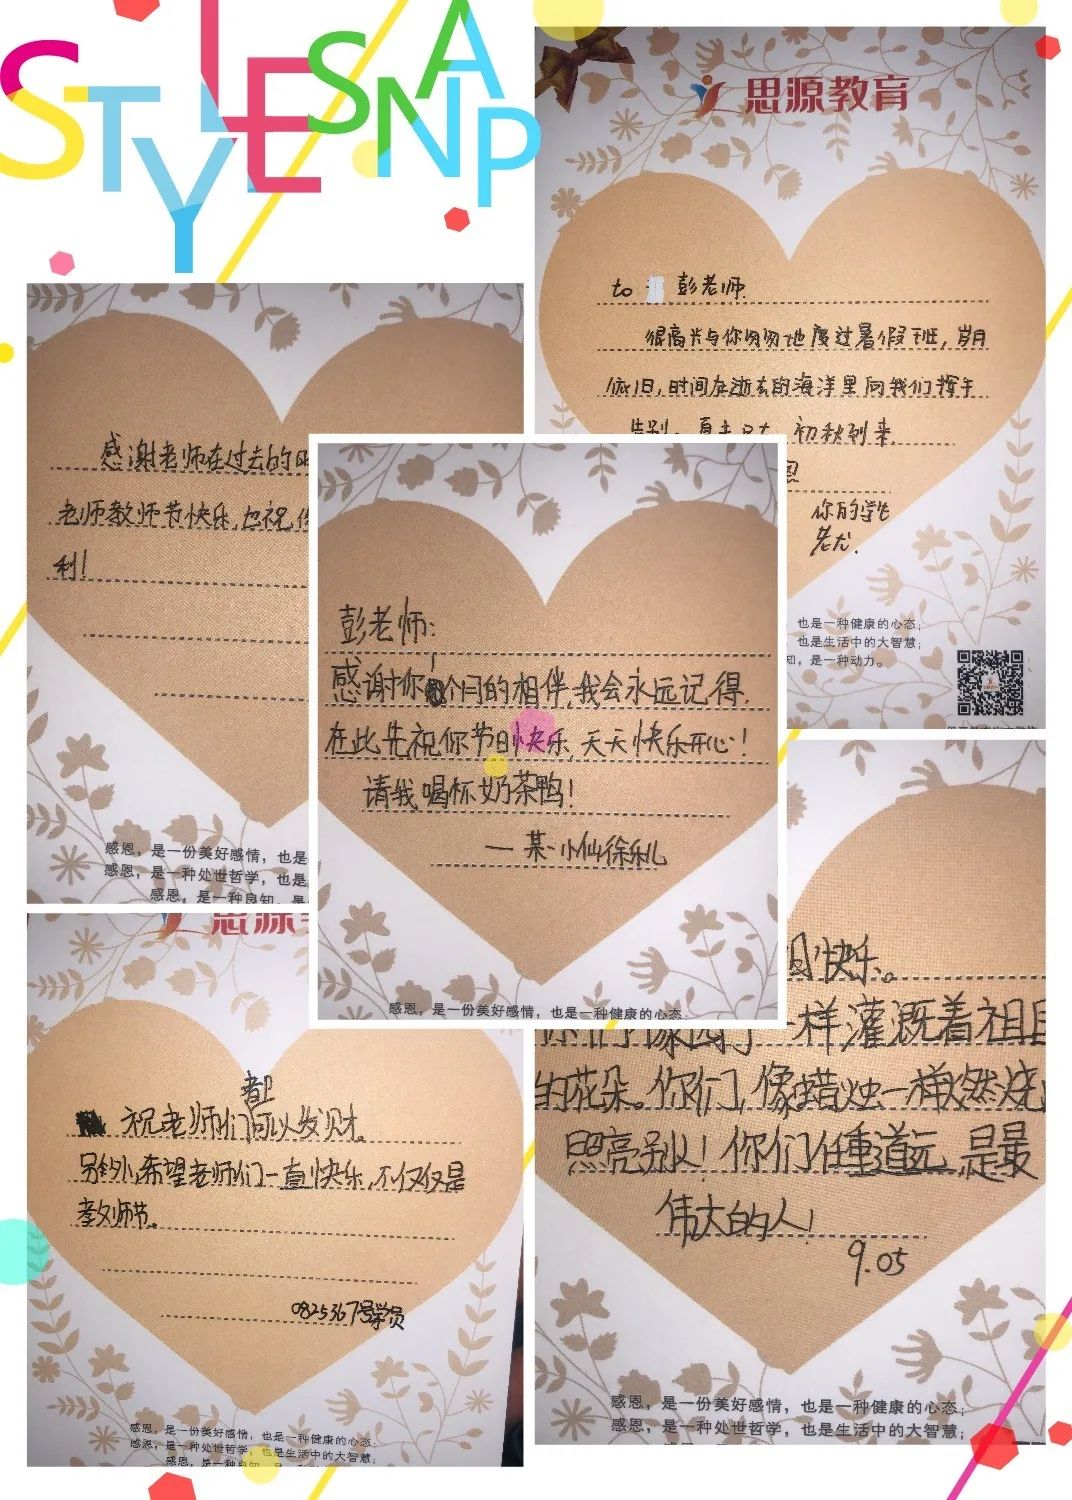 STYLE SNAP
思源教育
to 彭老师.
很高兴与你匆匆地度过暑假班，岁月
依旧，时间在逝去的海洋里向我们挥手
告别。夏去已大，初秋到来.
恩
你的学生
老尤.
也是一种健康的心态;
也是生活中的大智慧;
知，是一种动力。
感谢老师在过去的时
老师教师节快乐，也祝你
利!
感恩，是一份美好感情，也是
感恩，是一种处世哲学，也是
感恩，是一种良知，是
彭老师:
感谢你 个月的相伴，我会永远记得.
在此先祝你节日快乐，天天快乐开心!
请我喝杯奶茶鸭!
— 某小仙徐乐儿
感恩，是一份美好感情，也是一种健康的心态;
思源教
都
祝老师们可以发财。
另外，希望老师们一直快乐，不仅仅是
教师节。
0825367号学员
感恩，是一份美好感情，也是一种健康的心态;
感恩，是一种处世哲学，也是生活中的大智慧;
感恩，是一种良知，是一种
日快乐。
你们像园丁一样灌溉着祖国
的花朵。你们，像蜡烛一样燃烧
照亮别人！你们任重道远，是最
伟大的人！
9.05
感恩，是一份美好感情，也是一种健康的心态;
感恩，是一种处世哲学，也是生活中的大智慧;